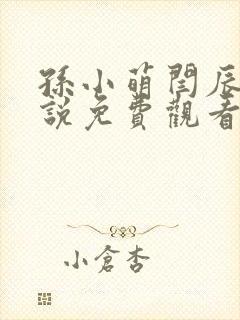 孫小萌閆辰
說免費觀看
小倉杏